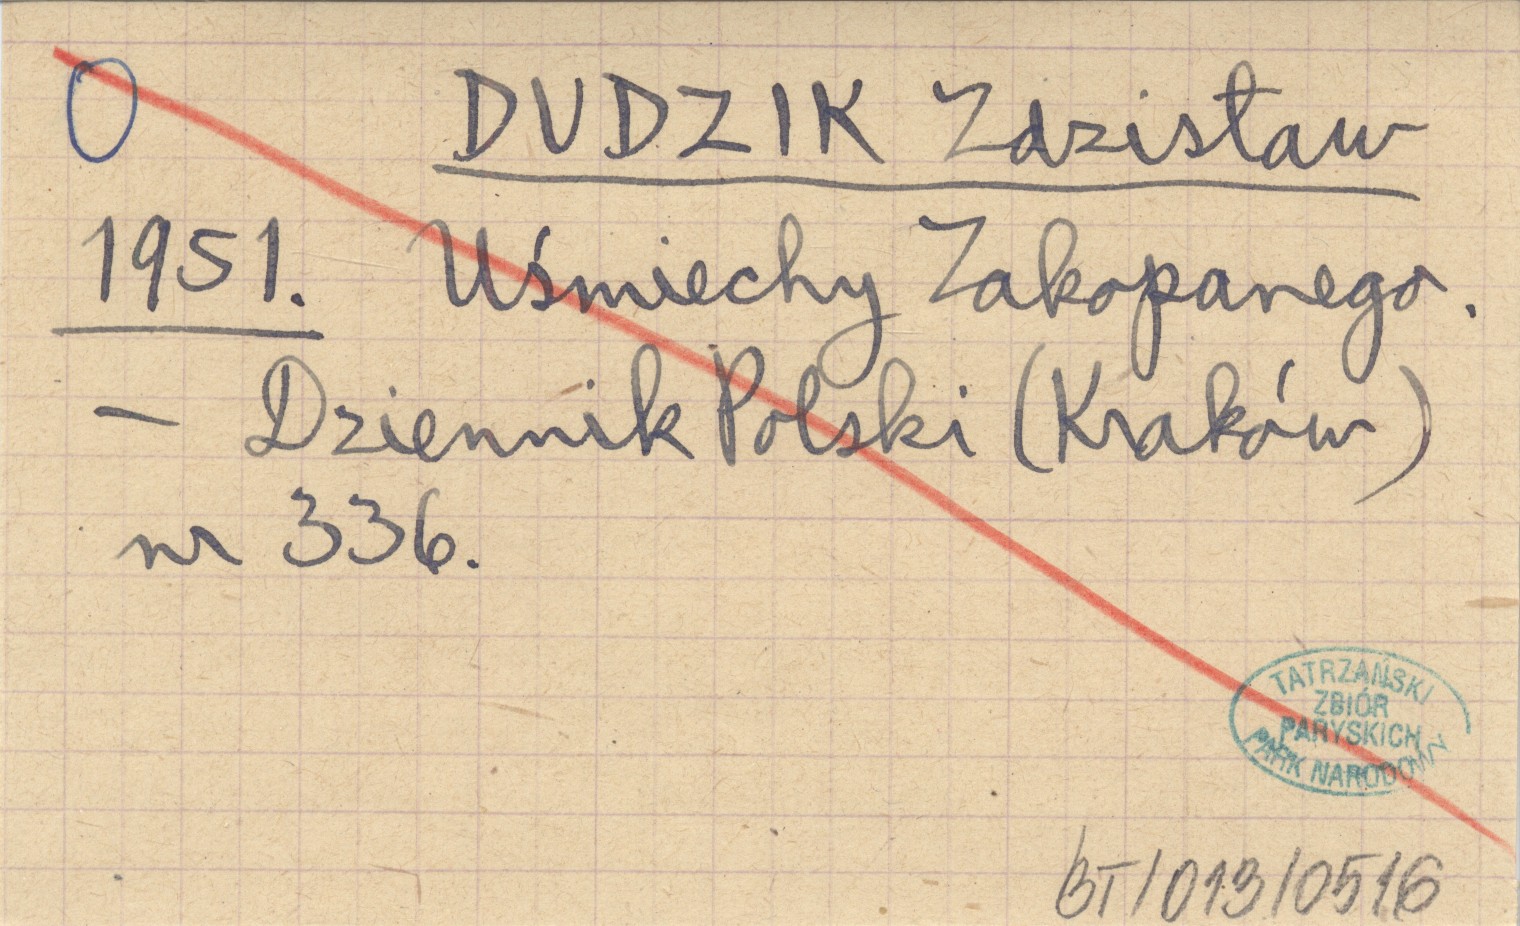 O DUDZIK Zdzisław
1951. Uśmiechy Zakopanego.
— Dziennik Polski (Kraków)
nr 336.
TATRZAŃSKI
ZBIÓR
PARYSKICH
PARK NARODOWY
BT/013/0516